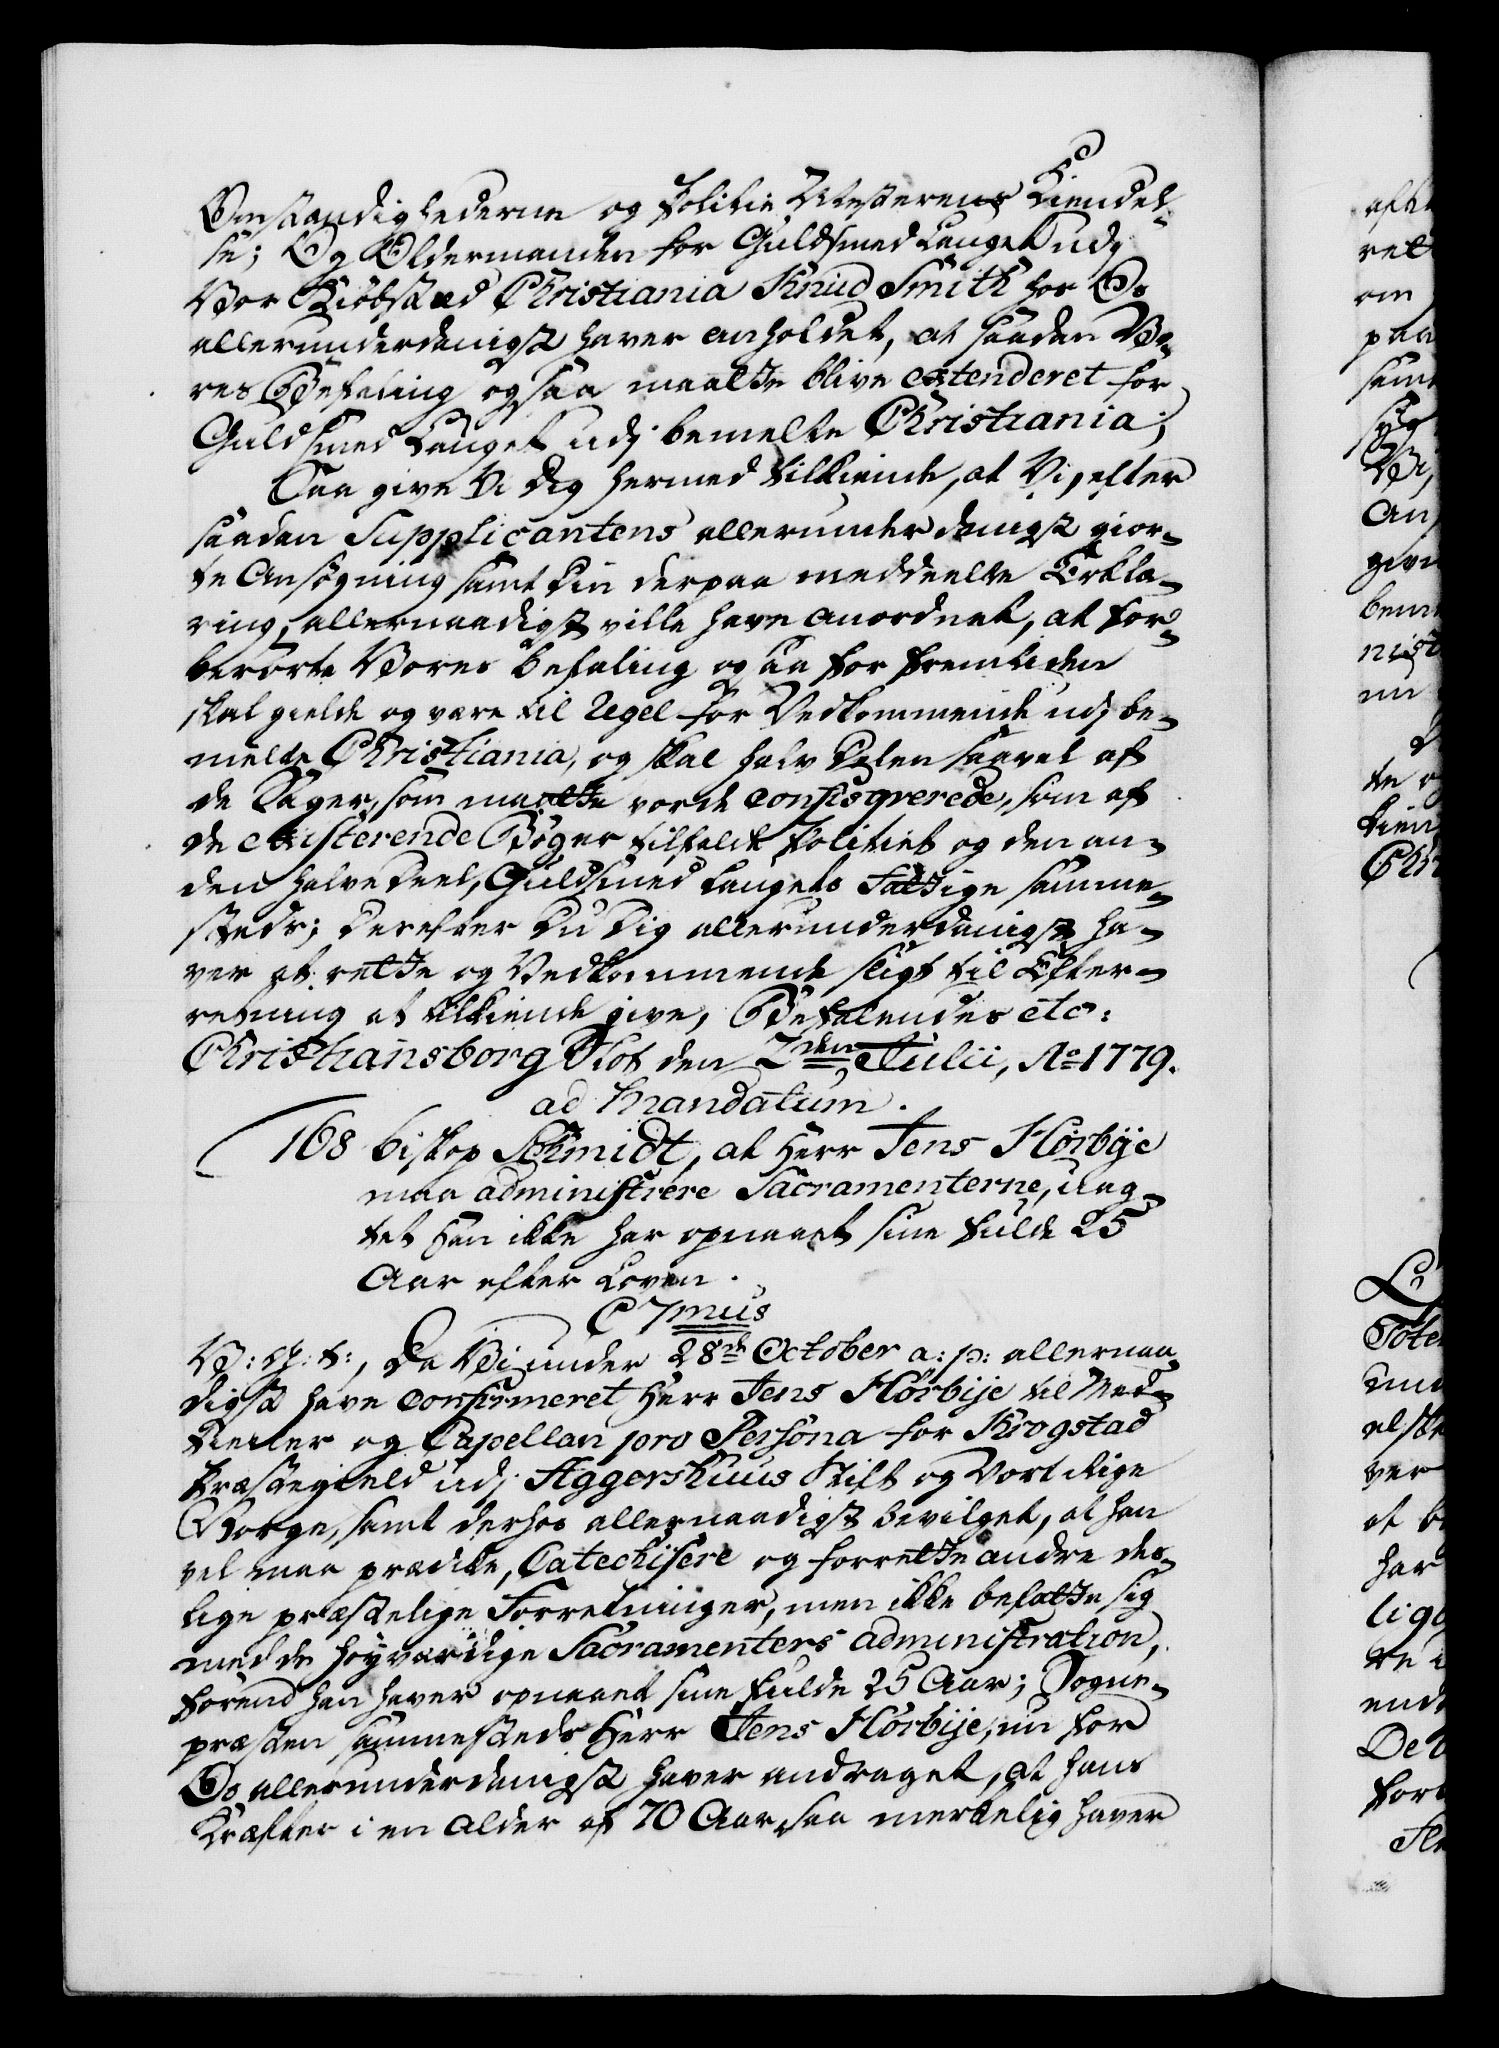 Omstændighederne og Politie Mesterens Kiendel-
se; Og Oldermanden for Guldsmed Lauget udj
Vor Kiøbstæd Christiania Knud Smith hos Os
allerunderdanigst haver anholdet, at saadan Vo-
res Befaling ogsaa maatte blive extenderet for
Guldsmed Lauget udj bemelte Christiania;
Saa give Vi dig hermed tilkiende, at Vi, efter
saadan Supplicantens allerunderdanigst gior-
te Ansøgning samt Din derpaa meddeelte Erklæ-
ring, allernaadigst ville have anordnet, at for-
berørte Vores Befaling ogsaa for Fremtiden
skal gielde og være til Regel for Vedkommende udj be-
melte Christiania, og skal halv Delen saavel af
de Sager, som maatte vorde confisqverede, som af
de existerende Bøger tilfalde Politiet og den an-
den halve Deel, Guldsmed Laugets Fattige samme-
steds; Derefter Du Dig allerunderdanigst ha-
ver at rette og Vedkommende sligt til Efter-
retning at tilkiende give, Befalendes etc:
Christiansborg Slot den 2den Julii, Ao 1779.
ad mandatum.
168 Biskop Schmidt, at Herr Jens Hørbije
maa administrere Sacramenterne, uag-
tet han ikke har opnaaet sine fulde 25
Aar efter Loven.
C 7mus
V: G: T:, Da Vi under 28de October a: p: allernaa-
digst have confirmeret Herr Jens Hørbije til Med-
tiener og Capellan pro Persona for Krogstad
Præstegield udj Aggershuus Stift og Vort Rige
Norge, samt derhos allernaadigst bevilget, at han
vel maa prædike, Catechisere og forrette andre des-
lige præstelige Forretninger, men ikke befatte sig
med de høyværdige Sacramenters administration,
førend han haver opnaaet sine fulde 25 Aar; Sogne-
præsten sammesteds Herr Jens Hørbije, nu for
Os allerunderdanigst haver andraget, at hans
Kræfter i en Alder af 70 Aar saa merkelig haver